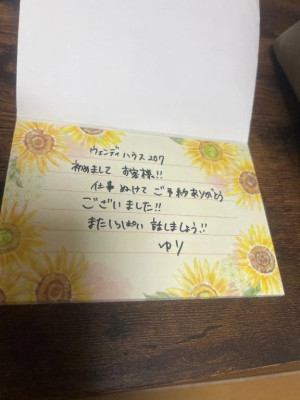 ウェンディハウス 207
初めまして お客様!!
仕事 ぬけて ご予約ありがとう
ございました!!
またいっぱい 話しましょう!!
ゆり